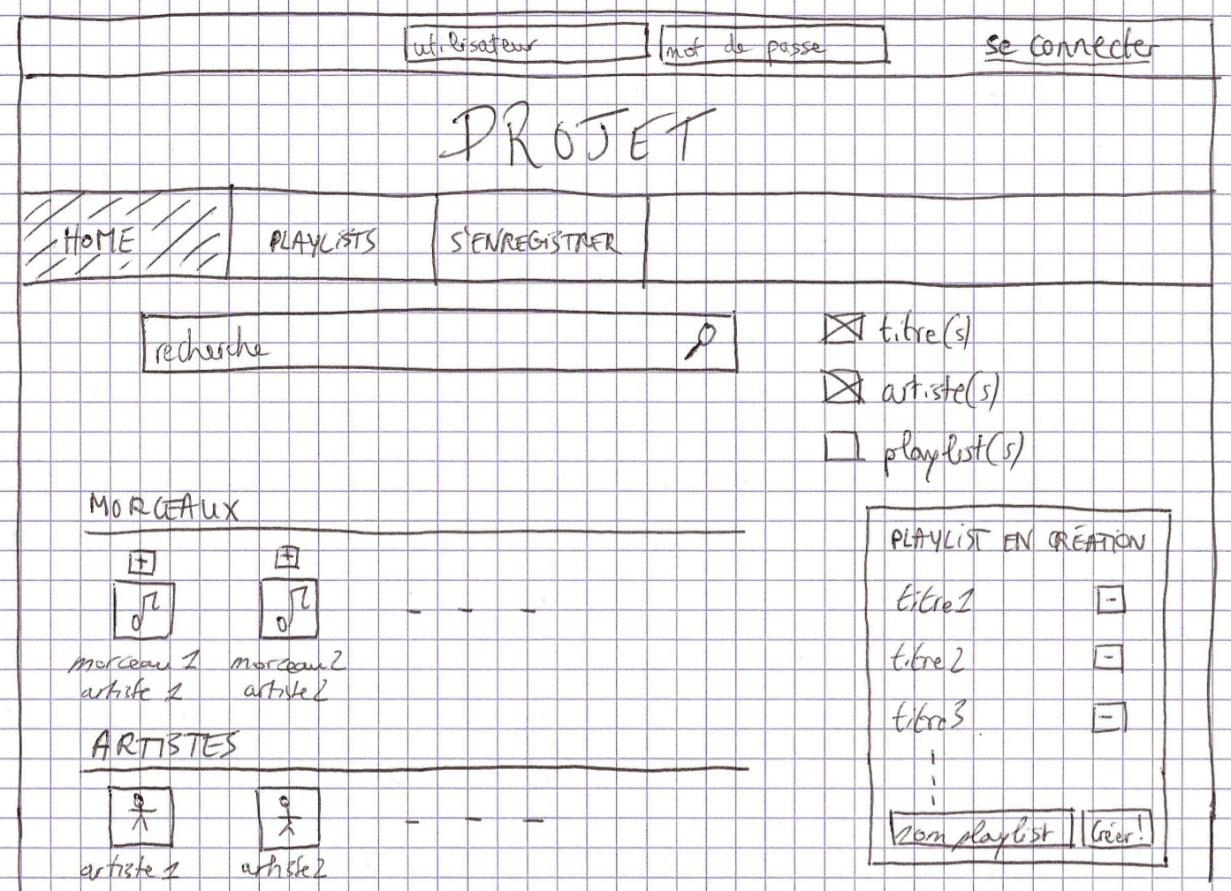 utilisateur
mot de passe
se connecter
PROJET
HOME
PLAYLISTS
S'ENREGISTRER
recherche
titre(s)
artiste(s)
playlist(s)
MORCEAUX
+
+
morceau 1
artiste 1
morceau 2
artiste 2
ARTISTES
artiste 1
artiste 2
PLAYLIST EN CRÉATION
titre1
-
titre2
-
titre3
-
nom playlist
Créer!